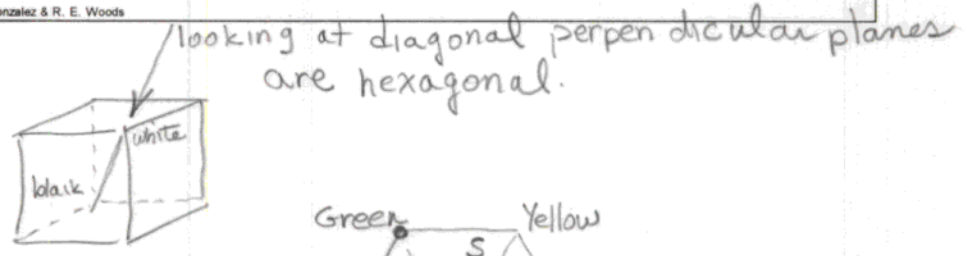 onzalez & R. E. Woods
looking at diagonal perpendicular planes
are hexagonal.
white
black
Green
Yellow
S